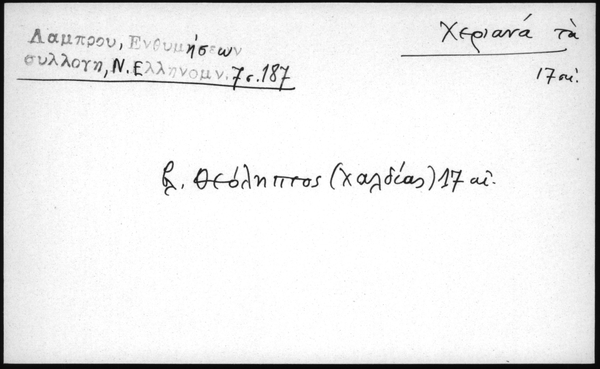 Λαμπρου, Ενθυμήσεων
συλλογη, Ν. Ελληνομν. 7 σ. 187
Χεριανά τὰ
17 αἰ.
βλ. Θεόληπτος (Χαλδίας) 17 αἰ.